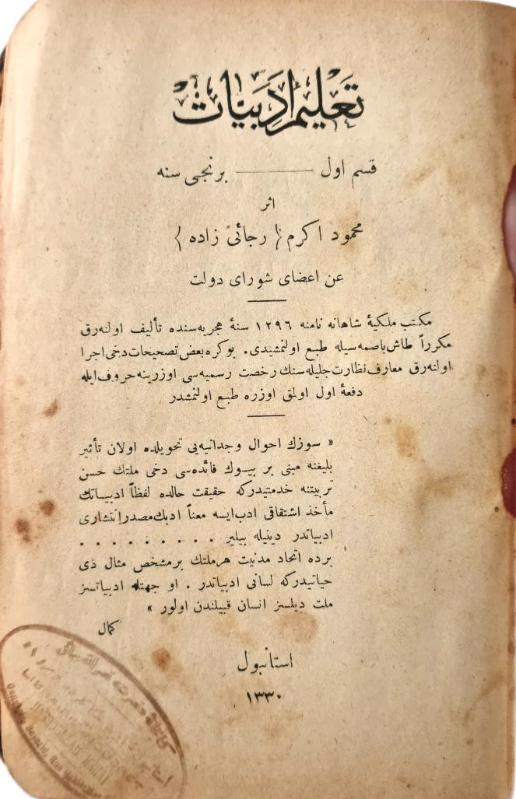 تعليم ادبيات
قسم اول —— برنجى سنه
اثر
محمود اكرم { رجائى زاده }
عن اعضاى شوراى دولت
مكتب ملكيۀ شاهانه نامنه ١٢٩٦ سنۀ هجريه‌سنده تأليف اولنه‌رق
مكرراً طاش باصمه‌سيله طبع اولنمشيدى. بو كره بعض تصحيحات دخى اجرا
اولنه‌رق معارف نظارت جليله‌سنك رخصت رسميه‌سى اوزرينه حروف ايله
دفعۀ اول اولمق اوزره طبع اولنمشدر
« سوزك احوال وجدانيه‌يى تحويلده اولان تأثير
بليغنه مبنى بر بيوك فائده‌سى دخى ملتك حسن
تربيتنه خدمتيدركه حقيقت حالده لفظاً ادبياتك
مأخذ اشتقاقى ادب ايسه معناً ادبك مصدر انتشارى
ادبياتدر دينيله بيلير . . . . . . . . .
برده اتحاد مدنيت هر ملتك بر مشخص مثال ذى
حياتيدركه لسانى ادبياتدر . او جهتله ادبياتسز
ملت ديلسز انسان قبيلندن اولور »
كمال
استانبول
١٣٣٠